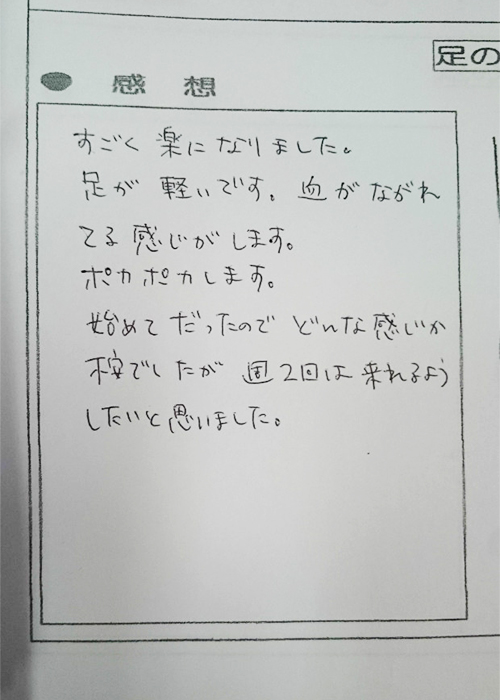 足の
● 感想
すごく楽になりました。
足が軽いです。血がながれ
てる感じがします。
ポカポカします。
始めてだったのでどんな感じか
でしたが週2回は来れるよう
したいと思いました。